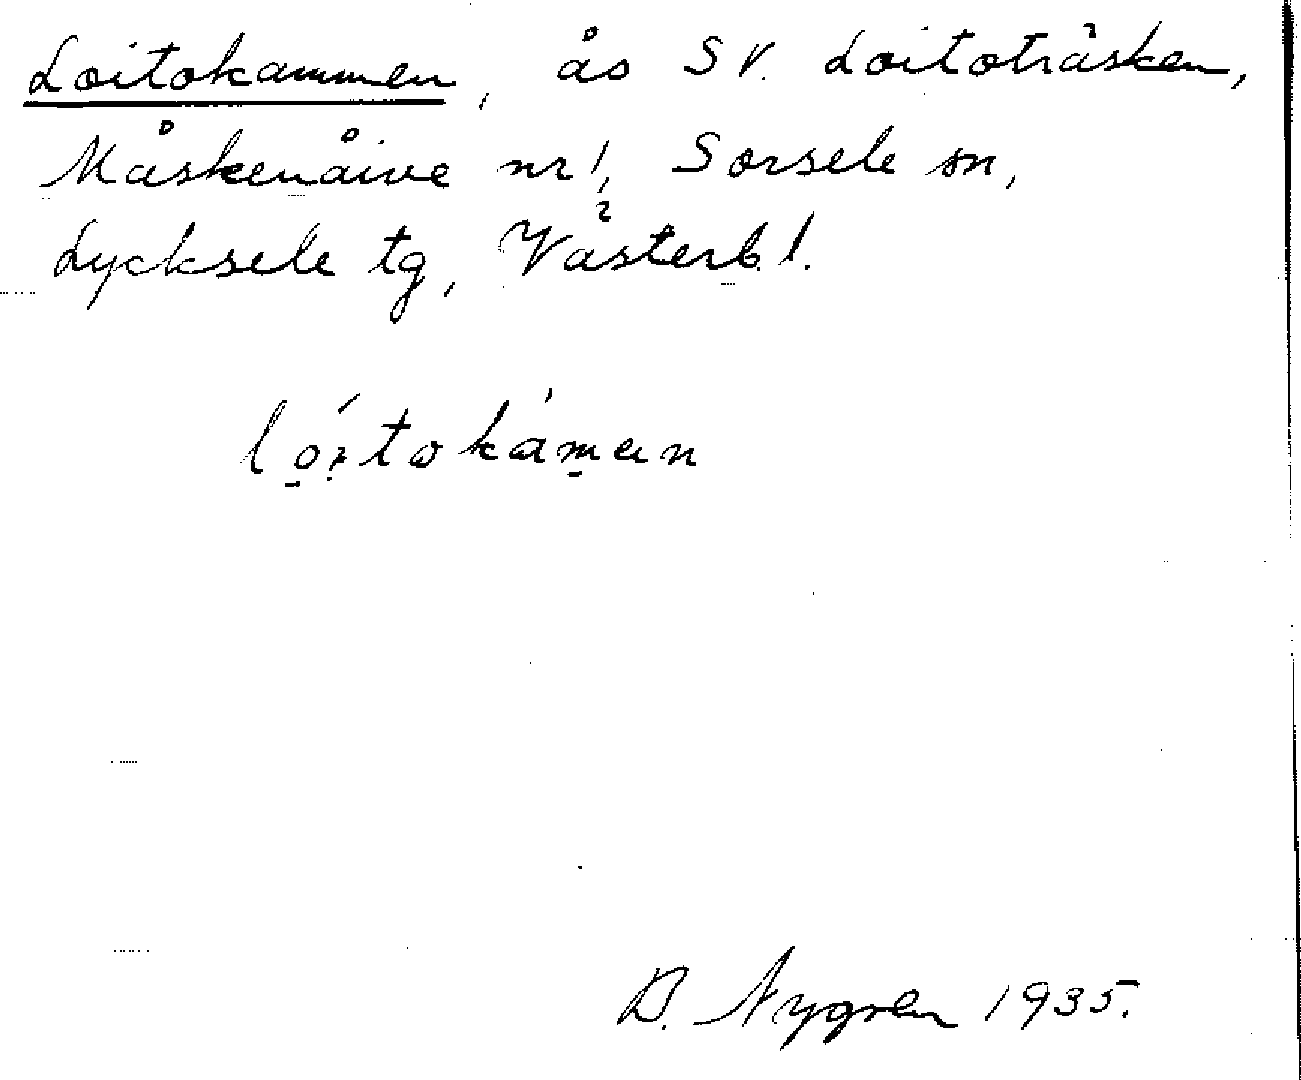 Loitokammen, ås SV. Loitoträsken,
Måskenåive nr 1, Sorsele sn,
Lycksele tg, Västerb. l.
lóitokámen
D. Nygren 1935.